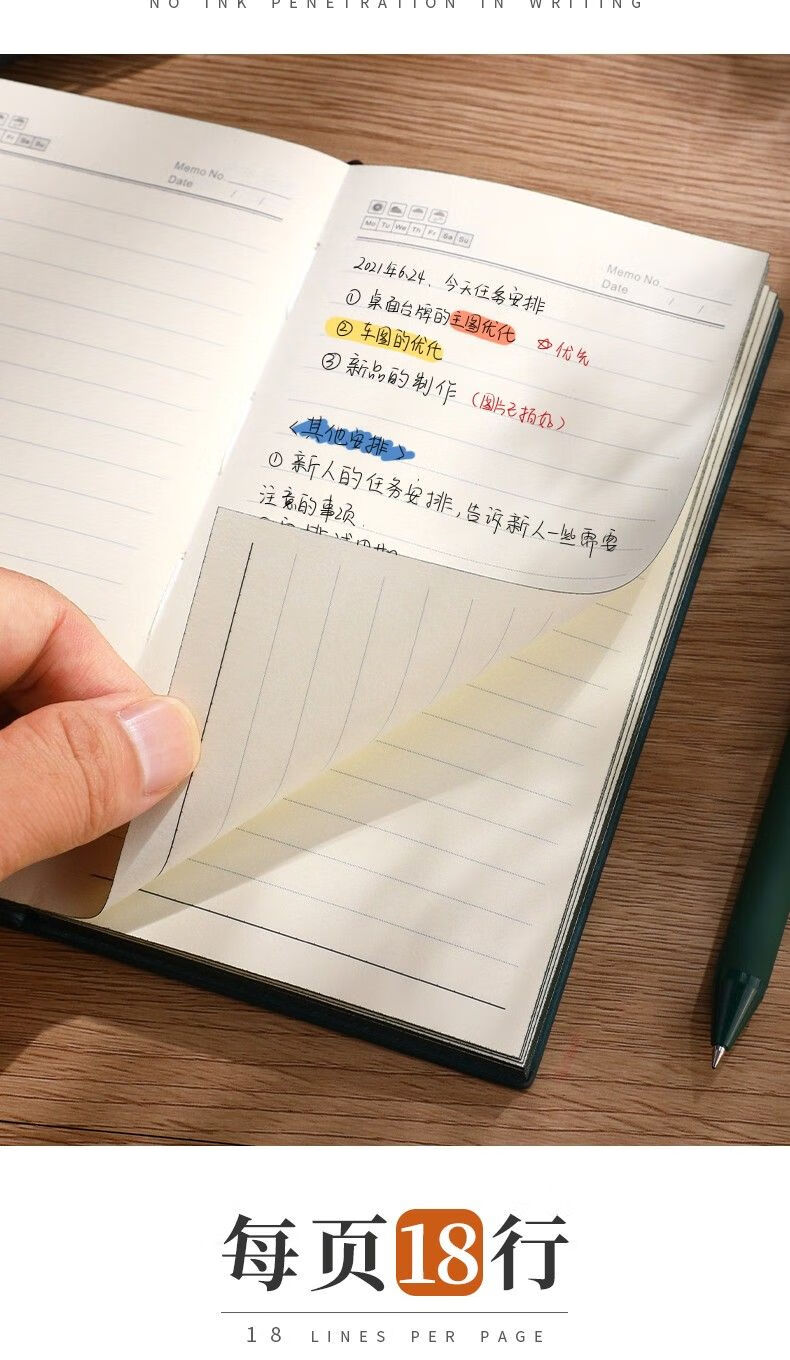 NO INK PENETRATION IN WRITING
Fr Sa Su
Memo No.
Date / /
Mo Tu We Th Fr Sa Su
Memo No.
Date / /
2021年6.24. 今天任务安排
① 桌面台牌的主图优化 ☆优先
② 车图的优化
③ 新品的制作 (图片已拍好)
<其他安排>
① 新人的任务安排,告诉新人一些需要
注意的事项.
每页18行
18 LINES PER PAGE